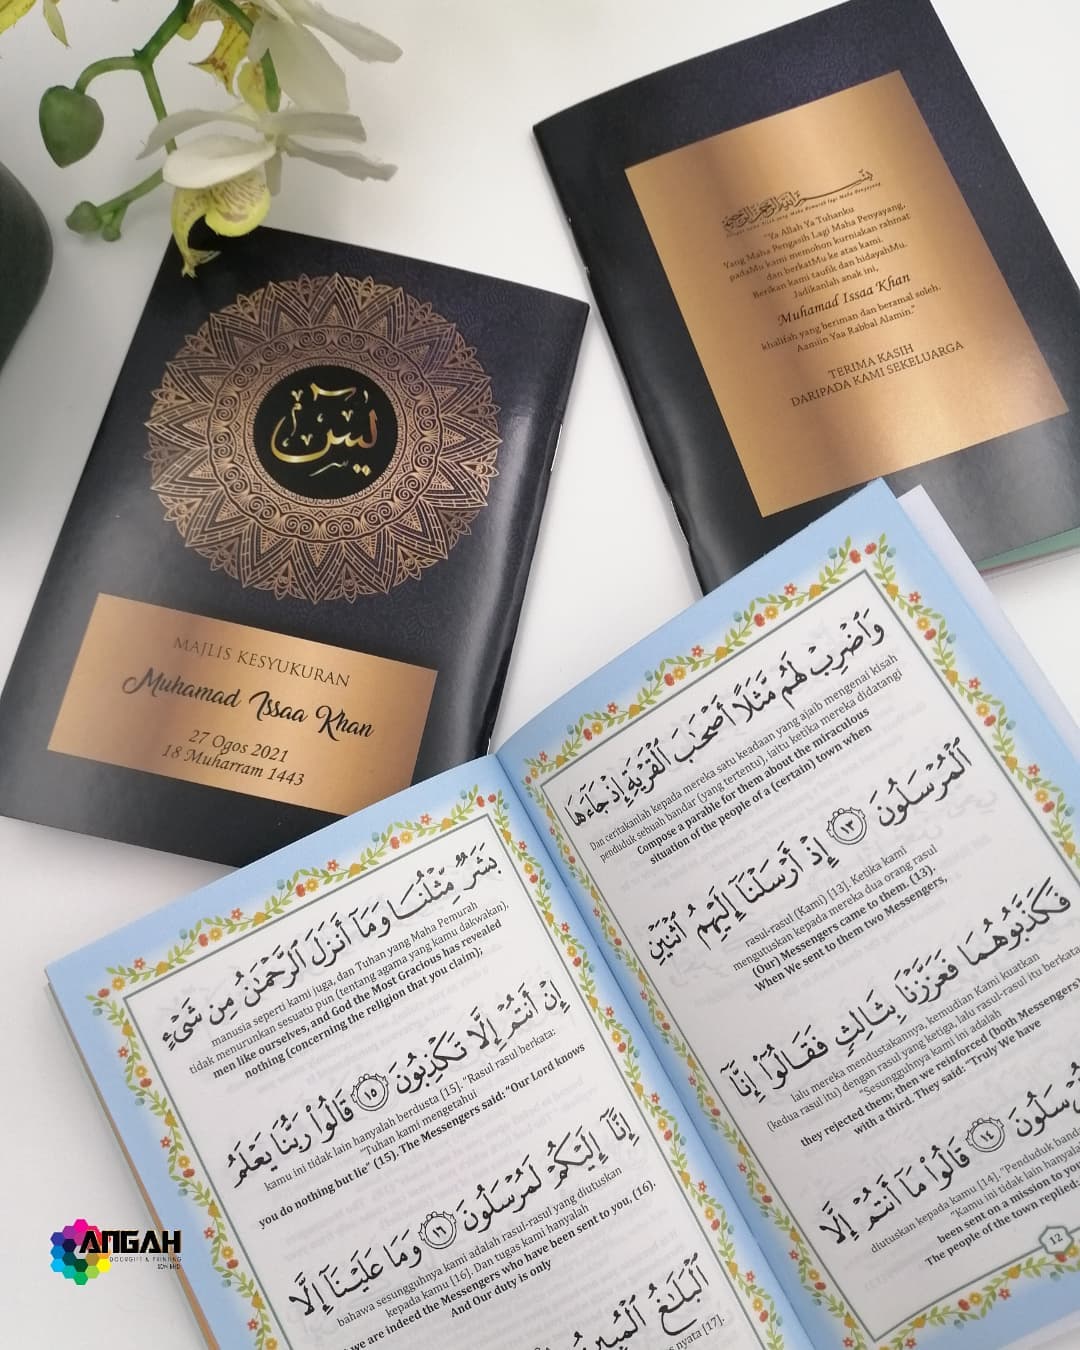 يس
MAJLIS KESYUKURAN
Muhamad Issaa Khan
27 Ogos 2021
18 Muharram 1443
بسم الله الرحمن الرحيم
Dengan nama Allah yang Maha Pemurah lagi Maha Penyayang
"Ya Allah Ya Tuhanku
Yang Maha Pengasih Lagi Maha Penyayang,
padaMu kami memohon kurniakan rahmat
dan berkatMu ke atas kami.
Berikan kami taufik dan hidayahMu.
Jadikanlah anak ini,
Muhamad Issaa Khan
khalifah yang beriman dan beramal soleh.
Aamiin Yaa Rabbal Alamin."
TERIMA KASIH
DARIPADA KAMI SEKELUARGA
وَٱضْرِبْ لَهُم مَّثَلًا أَصْحَٰبَ ٱلْقَرْيَةِ إِذْ جَآءَهَا
Dan ceritakanlah kepada mereka satu keadaan yang ajaib mengenai kisah
penduduk sebuah bandar (yang tertentu), iaitu ketika mereka didatangi
Compose a parable for them about the miraculous
situation of the people of a (certain) town when
ٱلْمُرْسَلُونَ ١٣ إِذْ أَرْسَلْنَآ إِلَيْهِمُ ٱثْنَيْنِ
rasul-rasul (Kami) [13]. Ketika kami
mengutuskan kepada mereka dua orang rasul
(Our) Messengers came to them. (13).
When We sent to them two Messengers,
فَكَذَّبُوهُمَا فَعَزَّزْنَا بِثَالِثٍ فَقَالُوٓا۟ إِنَّآ
lalu mereka mendustakannya, kemudian Kami kuatkan
(kedua rasul itu) dengan rasul yang ketiga, lalu rasul-rasul itu berkata:
"Sesungguhnya kami ini adalah
they rejected them; then we reinforced (both Messengers)
with a third. They said: "Truly We have
١٤ قَالُوا۟ مَآ أَنتُمْ إِلَّا
diutuskan kepada kamu [14]. "Penduduk
"Kamu ini tidak lain hanyalah
been sent on a mission to you
The people of the town replied:
12
بَشَرٌ مِّثْلُنَا وَمَآ أَنزَلَ ٱلرَّحْمَٰنُ مِن شَىْءٍ
manusia seperti kami juga, dan Tuhan yang Maha Pemurah
tidak menurunkan sesuatu pun (tentang agama yang kamu dakwakan),
men like ourselves, and God the Most Gracious has revealed
nothing (concerning the religion that you claim);
إِنْ أَنتُمْ إِلَّا تَكْذِبُونَ ١٥ قَالُوا۟ رَبُّنَا يَعْلَمُ
kamu ini tidak lain hanyalah berdusta [15]. "Rasul rasul berkata:
"Tuhan kami mengetahui
you do nothing but lie" (15). The Messengers said: "Our Lord knows
إِنَّآ إِلَيْكُمْ لَمُرْسَلُونَ ١٦ وَمَا عَلَيْنَآ إِلَّا
bahawa sesungguhnya kami adalah rasul-rasul yang diutuskan
kepada kamu [16]. Dan tugas kami hanyalah
we are indeed the Messengers who have been sent to you, (16).
And Our duty is only
ٱلْبَلَٰغُ ٱلْمُبِينُ
nyata [17].
ANGAH
DOORGIFT & PRINTING
SDN BHD